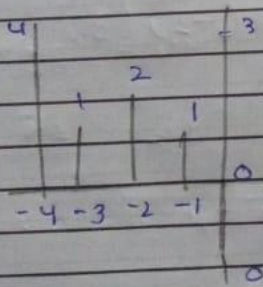 4 3
2
1 1
0
-4 -3 -2 -1
0